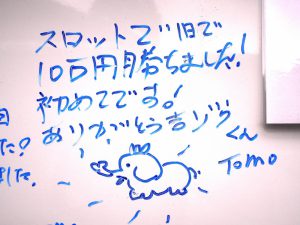 スロットで1日で
10万円勝ちました!
初めてです!
ありがとう吉ゾウ
くん
Tomo
た?
した.